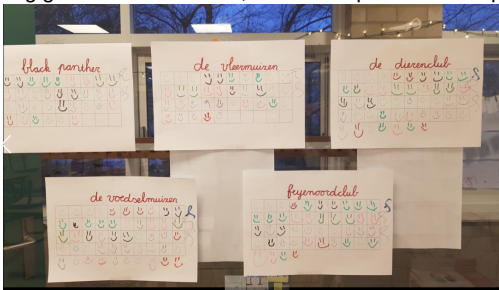 black panther
de vleermuizen
de dierenclub
de voedselmuizen
feyenoordclub